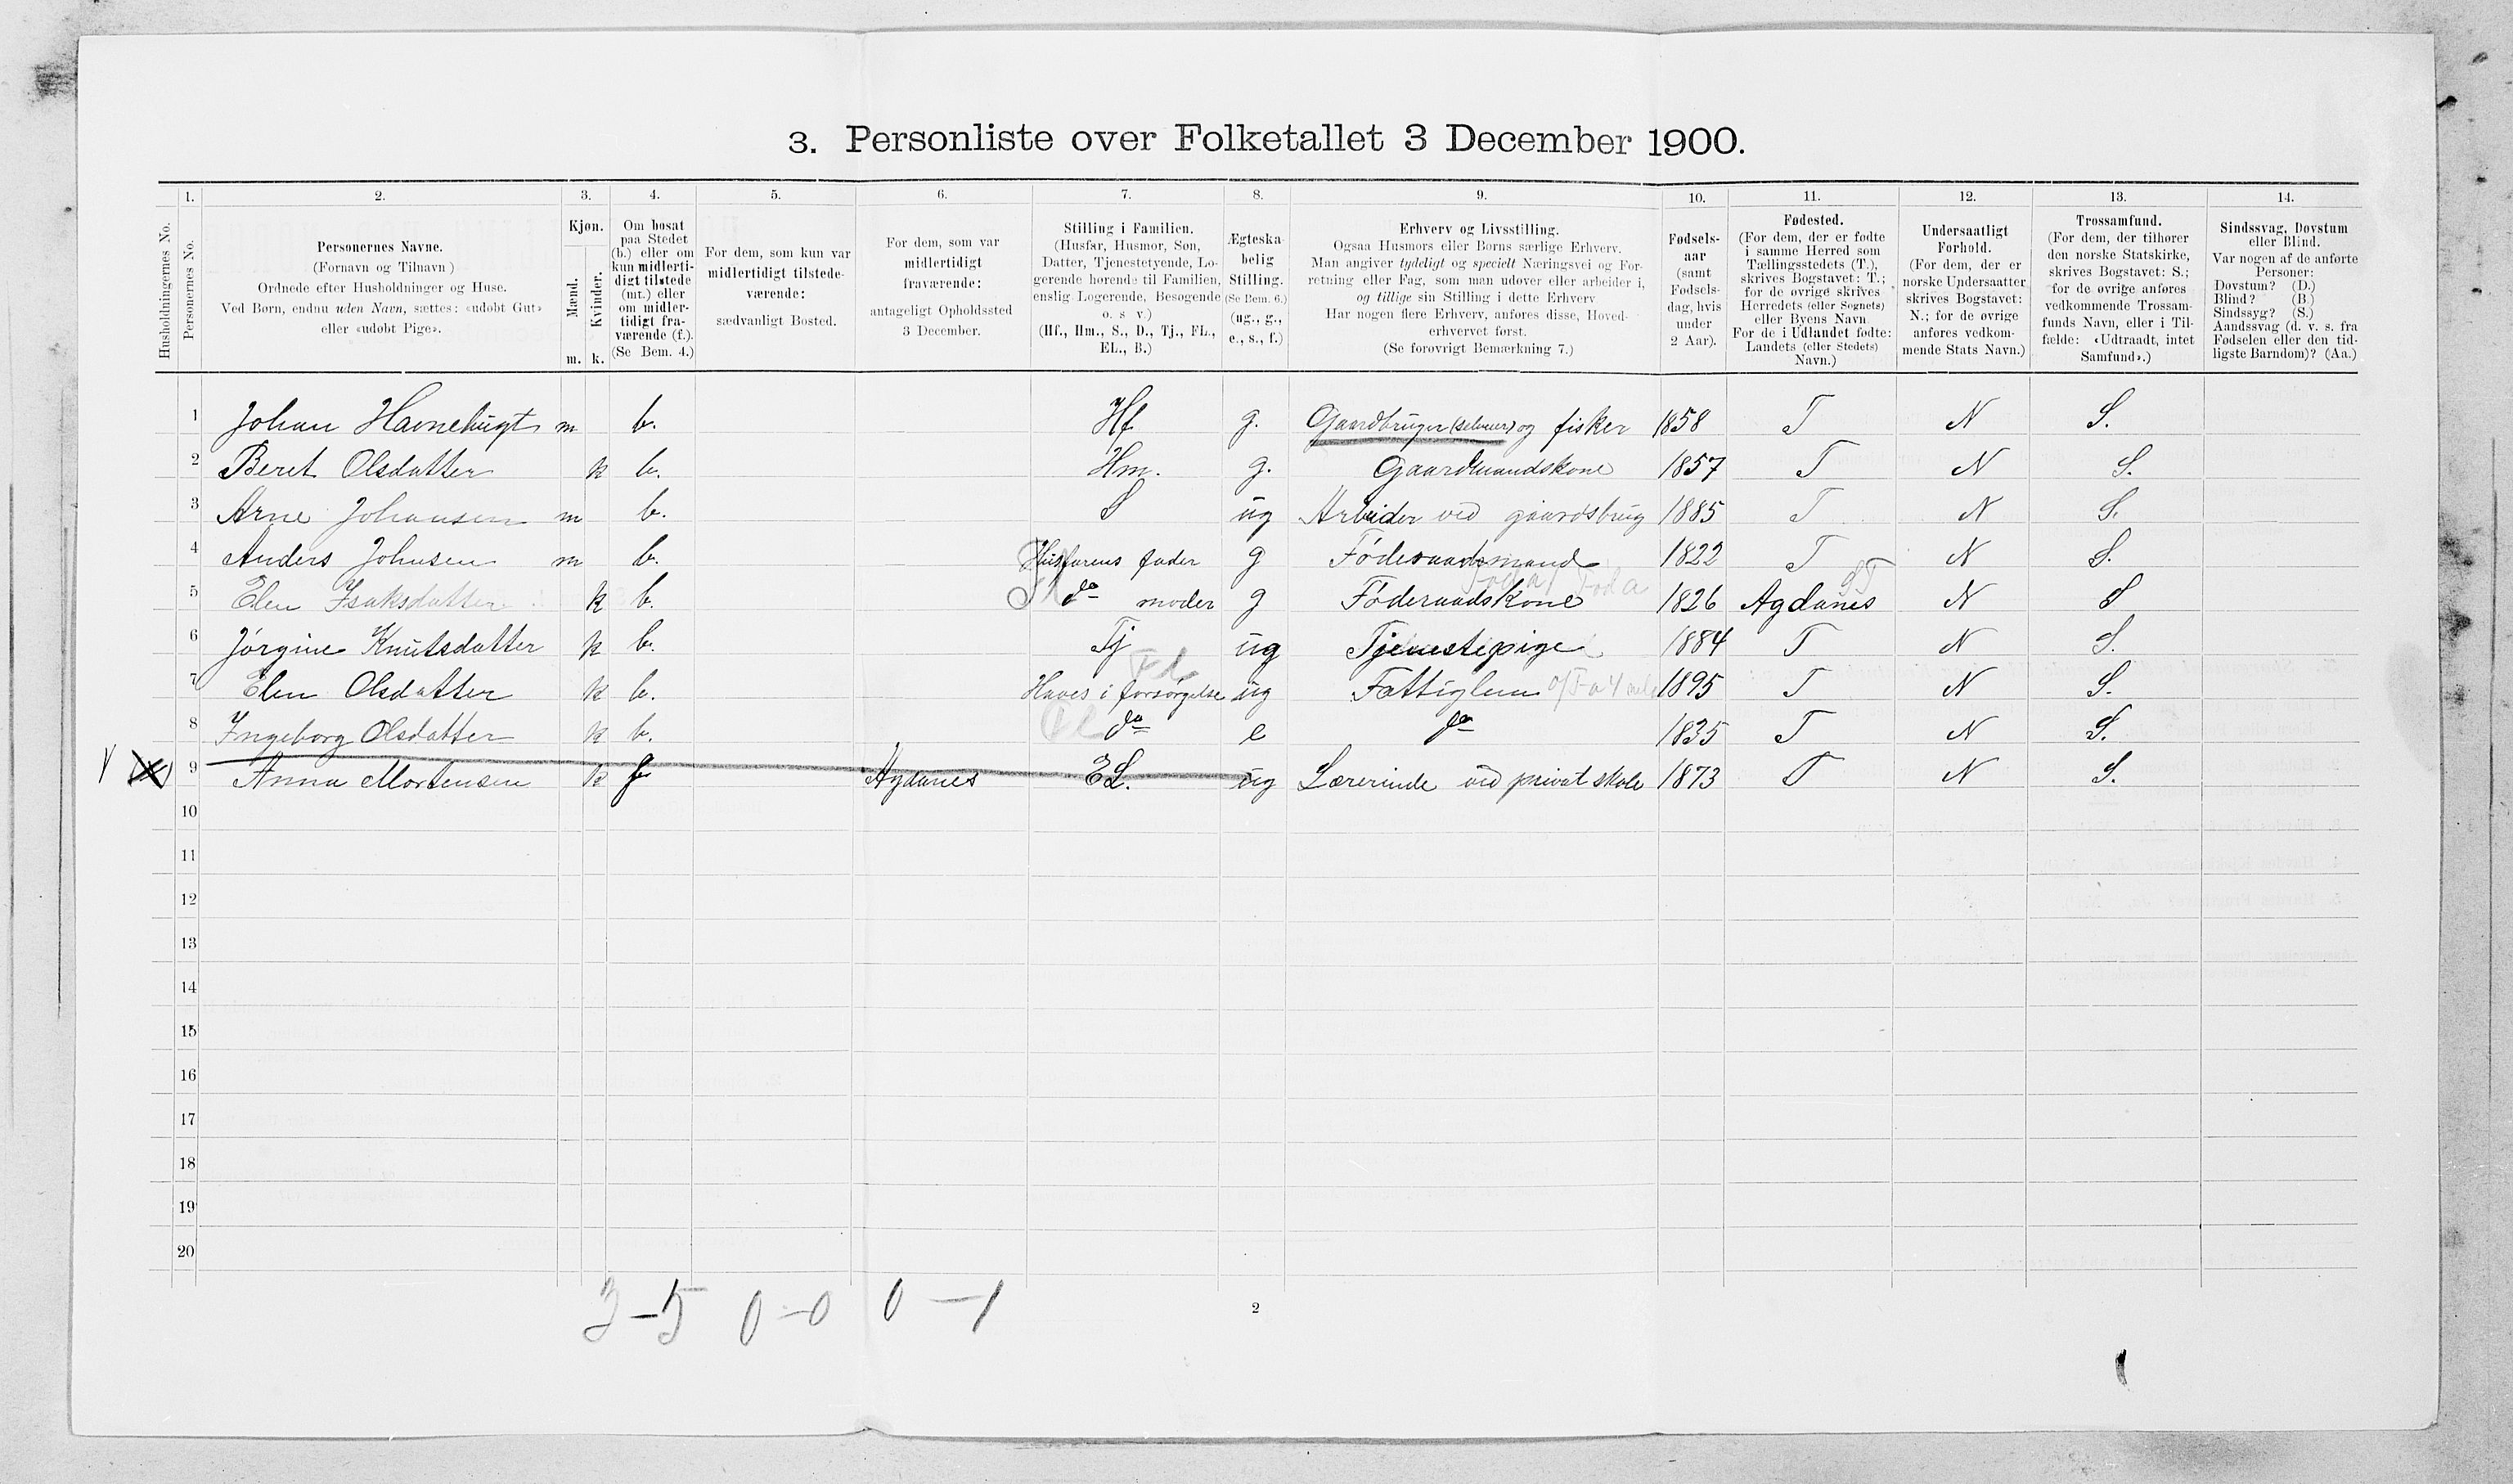 3. Personliste over Folketallet 3 December 1900.
1. 2. 3. 4. 5. 6. 7. 8. 9. 10. 11. 12. 13. 14.
Husholdningernes No.
Personernes No.
Personernes Navne.
(Fornavn og Tilnavn)
Ordnede efter Husholdninger og Huse.
Ved Børn, endnu uden Navn, sættes: «udøbt Gut»
eller «udøbt Pige».
Kjøn.
Mænd.
Kvinder.
m. k.
Om bosat
paa Stedet
(b.) eller om
kun midlerti-
digt tilstede
(mt.) eller
om midler-
tidigt fra-
værende (f.).
(Se Bem. 4.)
For dem, som kun var
midlertidigt tilstede-
værende:
sædvanligt Bosted.
For dem, som var
midlertidigt
fraværende:
antageligt Opholdssted
3 December.
Stilling i Familien.
(Husfar, Husmor, Søn,
Datter, Tjenestetyende, Lo-
gerende hørende til Familien,
enslig Logerende, Besøgende
o. s. v.)
(Hf., Hm., S., D., Tj., FL.,
EL., B.)
Ægteska-
belig
Stilling.
(Se Bem. 6.)
(ug., g.,
e., s., f.)
Erhverv og Livsstilling.
Ogsaa Husmors eller Børns særlige Erhverv.
Man angiver tydeligt og specielt Næringsvei og For-
retning eller Fag, som man udøver eller arbeider i,
og tillige sin Stilling i dette Erhverv.
Har nogen flere Erhverv, anføres disse, Hoved-
erhvervet først.
(Se forøvrigt Bemærkning 7.)
Fødsels-
aar
(samt
Fødsels-
dag, hvis
under
2 Aar).
Fødested.
(For dem, der er fødte
i samme Herred som
Tællingsstedets (T.),
skrives Bogstavet: T.;
for de øvrige skrives
Herredets (eller Sognets)
eller Byens Navn
For de i Udlandet fødte:
Landets (eller Stedets)
Navn.)
Undersaatligt
Forhold.
(For dem, der er
norske Undersaatter
skrives Bogstavet:
N.; for de øvrige
anføres vedkom-
mende Stats Navn.)
Trossamfund.
(For dem, der tilhører
den norske Statskirke,
skrives Bogstavet: S.;
for de øvrige anføres
vedkommende Trossam-
funds Navn, eller i Til-
fælde: «Udtraadt, intet
Samfund».)
Sindssvag, Døvstum
eller Blind.
Var nogen af de anførte
Personer:
Døvstum? (D.)
Blind? (B.)
Sindssyg? (S.)
Aandssvag (d. v. s. fra
Fødselen eller den tid-
ligste Barndom)? (Aa.)
1 Johan Havnebugt m b. Hf g. Gaardbruger (selveier) og fisker 1858 T N S.
2 Beret Olsdatter k b. Hm. g. Gaardmandskone 1857 T N S.
3 Arne Johansen m b. S ug Arbeider ved gaardsbrug 1885 T N S.
4 Anders Johnsen m b. Husfarens fader g Føderaadsmand 1822 T N S.
5 Elen Isaksdatter k b. do moder g Føderaadskone 1826 Agdanes N S
6 Jørgine Knutsdatter k b. Tj ug Tjenestepige 1884 T N S.
7 Elen Olsdatter k b. Haves i forsørgelse ug Fattiglem 1895 T N S.
8 Ingeborg Olsdatter k b. do e do 1835 T N S.
9 Anna Mortensen k f Agdanes EL. ug Lærerinde ved privat skole 1873 T N S.
10
11
12
13
14
15
16
17
18
19
20
3-5 0-0 0-1
2